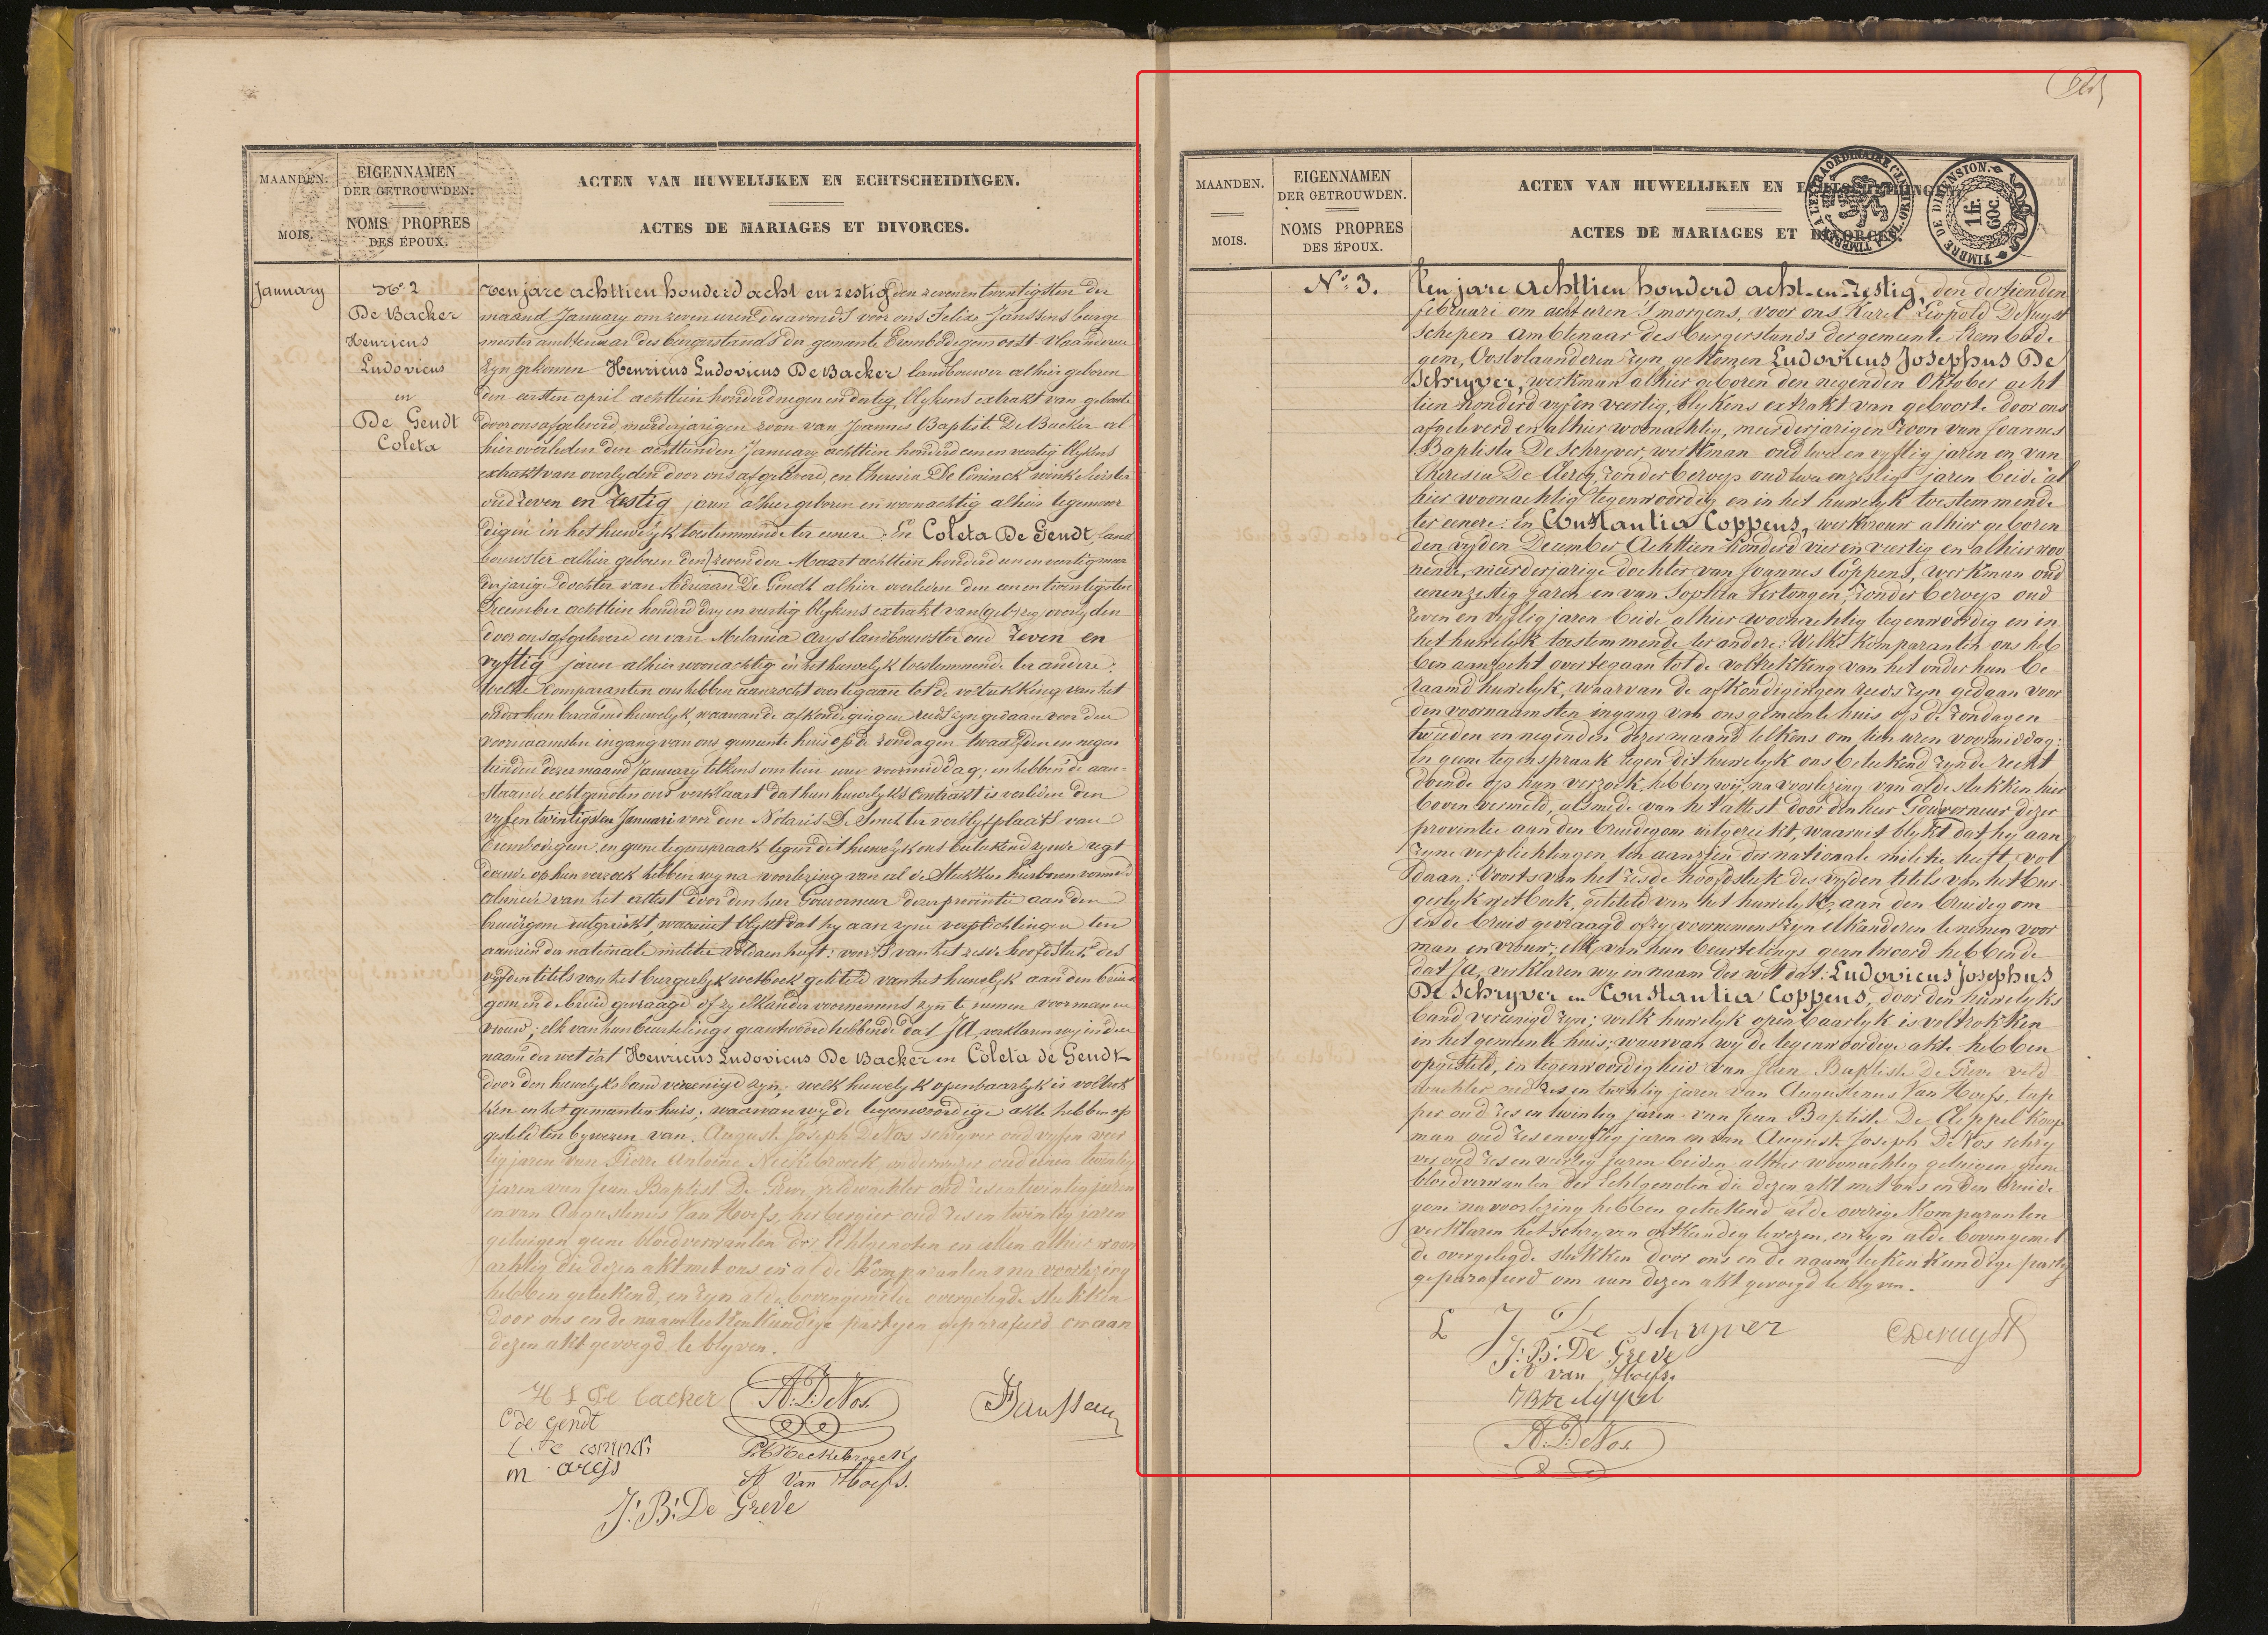 MAANDEN.
MOIS.
EIGENNAMEN
DER GETROUWDEN.
NOMS PROPRES
DES ÉPOUX.
ACTEN VAN HUWELIJKEN EN ECHTSCHEIDINGEN.
ACTES DE MARIAGES ET DIVORCES.
January
No 2
De Backer
Henricus
Ludovicus
en
De Gendt
Coleta
Ten jare achttien honderd acht en zestig den zevenentwentigsten der
maand January om zeven uren des avonds voor ons Felix Janssens burge
meester ambtenaar des burgerstands der gemeente Erembodegem oost vlaanderen
zyn gekomen Henricus Ludovicus De Backer landbouwer alhier geboren
den eersten april achttien honderd negen en dertig, blykens extrakt van geboorte
door ons afgeleverd, meerderjarigen zoon van Joannes Baptiste De Backer al
hier overleden den achttienden January achttien honderd een en veertig blykens
extrakt van overlyden door ons afgeleverd, en Theresia De Coninck winkelierster
oud zeven en zestig jaren alhier geboren en woonachtig alhier tegenwoor
digen in het huwelyk toestemmende ter eenere. En Coleta De Gendt land
bouwster alhier geboren den zevenden Maart achttien honderd een en veertig meer
derjarige dochter van Adriaan De Gendt alhier overleden den een en twintigsten
December achttien honderd dry en veertig blykens extrakt van (geb) overlyden
door ons afgeleverd en van Melania Arys landbouwster oud zeven en
vyftig jaren alhier woonachtig in het huwelyk toestemmende ter andere:
Welke Comparanten ons hebben aanzocht over te gaan tot de voltrekking van het
onder hun beraamd huwelyk, waarvan de afkondigingen reeds zyn gedaan voor den
voornaamsten ingang van ons gemeente huis op de zondagen twaalfden en negen
tienden dezer maand January telkens om tien uren voormiddag; en hebben de aan-
staande echtgenoten ons verklaart dat hun huwelyks Contrakt is verleden den
vyfentwintigsten Januari voor den Notaris De Smet ter verblyfplaats van
Erembodegem en geene tegenspraak tegen dit huwelyk ons beteekend zynde regt
doende op hun verzoek hebben wy na voorlezing van al de Stukken hierboven vermeld
alsmede van het attest door den heer Gouverneur dezer provintie aan den
bruidgom uitgereikt, waaruit blykt dat hy aan zyne verplichtingen ten
aanzien der nationale militie voldaen heeft: voorts van het zesde hoofdstuk des
vyfden titels van het burgerlyk wetboek getiteld van het huwelyk aan den bruid
gom en de bruid gevraagd of zy elkander voornemens zyn te nemen voor man en
vrouw; elk van hun beurtelings geantwoord hebbende dat JA, verklaren wy in den
naam der wet dat Henricus Ludovicus De Backer en Coleta de Gendt
door den huwelyks band vereenigd zyn; welk huwelyk openbaarlyk is voltrok
ken in het gemeenten huis; waarvan wy de tegenwoordige akte hebben op
gesteld ten bywezen van. August Joseph De Vos schryver oud vyfen veer
tig jaren van Pierre Antoine Neckebroeck, onderwyzer oud eenen twintig
jaren van Jean Baptist De Greve, veldwachter oud zesentwintig jaren
en van Augustinus Van Hoefs, herbergier oud zes en twintig jaren
getuigen geene bloedverwanten der Echtgenoten en allen alhier woon
achtig die dezen akt met ons en al de Komparanten na voorlezing
hebben geteekend, en zyn al de bovengemelde overgelegde stukken
door ons en de naamteekenkundige partyen geparafeerd om aan
dezen akt gevoegd te blyven.
H L De backer
A. De Vos.
Janssens
C de gendt
t de coninck
P A Neckebroeck
m arys
A Van Hoefs.
J. B. De Greve
MAANDEN.
MOIS.
EIGENNAMEN
DER GETROUWDEN.
NOMS PROPRES
DES ÉPOUX.
ACTEN VAN HUWELIJKEN EN ECHTSCHEIDINGEN.
ACTES DE MARIAGES ET DIVORCES.
TIMBRE A L'EXTRAORDINAIRE
TIMBRE DE DIMENSION.
1 fr. 60c.
No. 3.
Ten jare Achttien honderd acht-en-zestig, den dertienden
februari om acht uren 's morgens, voor ons Karel Leopold De Ruyst
schepen Ambtenaar des burgerstands der gemeente Erembode-
gem, Oostvlaanderen zyn gekomen Ludovicus Josephus De
Schryver, werkman alhier geboren den negenden Oktober acht
tien honderd vyf en veertig, blykens extrakt van geboorte door ons
afgeleverd en alhier woonachtig, meerderjarigen zoon van Joannes
Baptista De Schryver, werkman oud twee en vyftig jaren en van
Theresia De Clercq, zonder beroep oud twee en zestig jaren beide al
hier woonachtig tegenwoordig en in het huwelyk toestemmende
ter eenere: En Constantia Coppens, werkvrouw alhier geboren
den vyfden December Achttien honderd vier en veertig en alhier woo
nende, meerderjarige dochter van Joannes Coppens, werkman oud
eenenzestig jaren en van Sophia Verlongen, zonder beroep oud
zeven en vyftig jaren beide alhier woonachtig tegenwoordig en in
het huwelyk toestemmende ter andere: Welke Komparanten ons heb
ben aanzocht over te gaan tot de voltrekking van het onder hun be-
raamd huwelyk, waarvan de afkondigingen reeds zyn gedaan voor
den voornaamsten ingang van ons gemeente huis, op de zondagen
tweeden en negenden dezer maand telkens om tien uren voormiddag;
en geene tegenspraak tegen dit huwelyk ons beteekend zynde recht
doende op hun verzoek, hebben wij, na voorlezing van al de stukken hier
boven vermeld, alsmede van het attest door den heer Gouverneur dezer
provintie aan den bruidegom uitgereikt, waaruit blykt dat hy aan
zyne verplichtingen ten aanzien der nationale militie heeft vol
daan: Voorts van het zesde hoofdstuk des vyfden titels van het bur-
gerlyk wetboek, getiteld van het huwelyk, aan den bruidegom
en de bruid gevraagd of zy voornemens zyn elkanderen te nemen voor
man en vrouw; elk van hun beurtelings geantwoord hebbende
dat Ja, verklaren wy in naam der wet dat: Ludovicus Josephus
De Schryver en Constantia Coppens, door den huwelyks
band vereenigd zyn; welk huwelyk openbaarlyk is voltrokken
in het gemeente huis; waarvan wy de tegenwoordige akte hebben
opgesteld, in tegenwoordigheid van Jean Baptiste De Greve veld
wachter oud zes en twintig jaren van Augustinus Van Hoefs, tap
per oud zes en twintig jaren van Jean Baptiste De Cleppel koop
man oud zes en vyftig jaren en van August Joseph De Vos schry
ver oud zes en veertig jaren beiden alhier woonachtig getuigen geene
bloedverwanten der Echtgenoten die dezen akt met ons en den bruide
gom na voorlezing hebben geteekend al de overige Komparanten
verklaren het schryven onkundig te wezen, en zyn al de bovengemel
de overgelegde stukken door ons en de naamteekenkundige party
geparafeerd om aan dezen akt gevoegd te blyven.
L J De schryver
C Deruyst
J. B. De Greve
A van Hoefs.
A. De Vos.